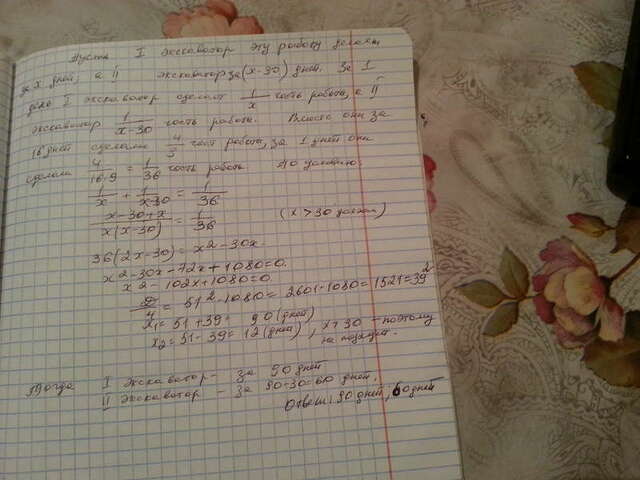 Пусть I экскаватор эту работу делает
за x дней, а II экскаватор за (x-30) дней. За 1
день I экскаватор сделает 1/x часть работы, а II
экскаватор 1/x-30 часть работы. Вместе они за
16 дней сделали 4/9 част работы, за 1 дней они
сделали 4/16·9 = 1/36 часть работы. По условию:
1/x + 1/x-30 = 1/36
x-30+x/x(x-30) = 1/36 (x>30 должен)
36(2x-30) = x²-30x
x²-30x-72x+1080=0.
x²-102x+1080=0.
D/4 = 51²-1080 = 2601-1080=1521=39²
x₁=51+39= 90 (дней)
x₂=51-39=12 (дней), x>30 - поэтому
не подходит.
Тогда I экскаватор - за 90 дней
II экскаватор - за 90-30=60 дней.
Ответ: 90 дней; 60 дней